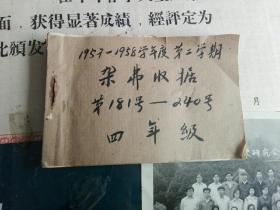 面，获得显著成绩，經評定为
此頒发
1957-1958学年度第二学期
杂费收据
第181号—240号
四年級
月